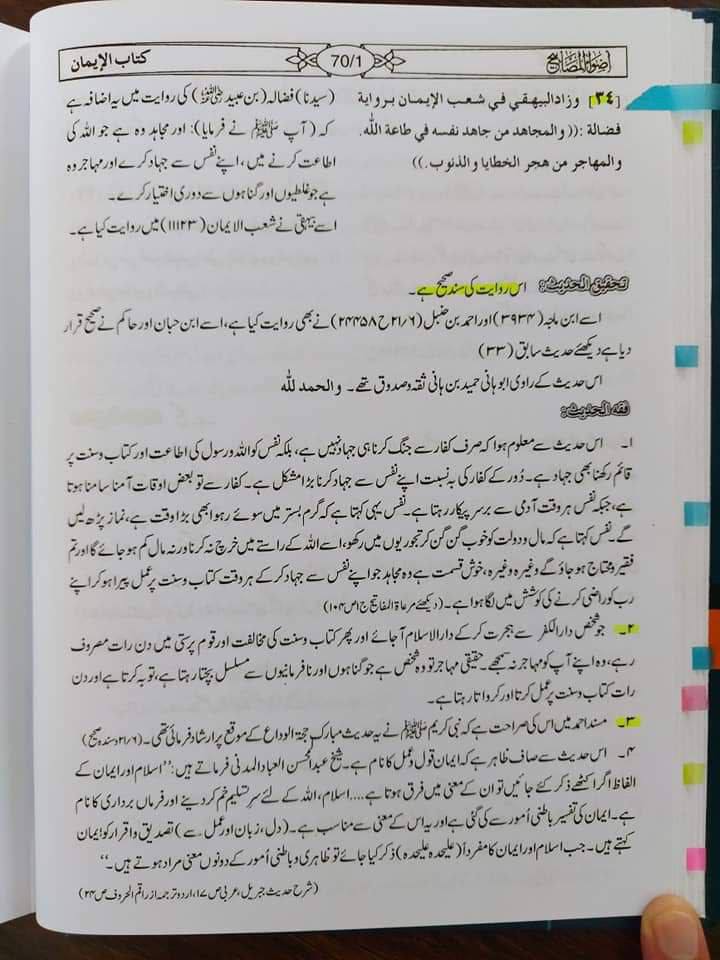 كتاب الإيمان
70/1
اضواء المصابیح
[٣٤] وزاد البيهقي في شعب الإيمان برواية
فضالة :(( والمجاهد من جاهد نفسه في طاعة الله.
والمهاجر من هجر الخطايا والذنوب.))
(سیدنا) فضالہ (بن عبید رضی اللہ عنہ) کی روایت میں یہ اضافہ ہے
کہ (آپ ﷺ نے فرمایا): اور مجاہد وہ ہے جو اللہ کی
اطاعت کرنے میں، اپنے نفس سے جہاد کرے اور مہاجر وہ
ہے جو غلطیوں اور گناہوں سے دوری اختیار کرے۔
اسے بیہقی نے شعب الایمان (۱۱۱۲۳) میں روایت کیا ہے۔
تحقیق الحدیث: اس روایت کی سند صحیح ہے۔
اسے ابن ماجہ (۳۹۳۴) اور احمد بن حنبل (۲۱/۶ ح ۲۴۴۵۸) نے بھی روایت کیا ہے، اسے ابن حبان اور حاکم نے صحیح قرار
دیا ہے دیکھئے حدیث سابق (۳۳)
اس حدیث کے راوی ابو ہانی حمید بن ہانی ثقہ و صدوق تھے۔ والحمد لله
فقہ الحدیث:
۱۔ اس حدیث سے معلوم ہوا کہ صرف کفار سے جنگ کرنا ہی جہاد نہیں ہے، بلکہ نفس کو اللہ و رسول کی اطاعت اور کتاب و سنت پر
قائم رکھنا بھی جہاد ہے۔ دُور کے کفار کی بہ نسبت اپنے نفس سے جہاد کرنا بڑا مشکل ہے۔ کفار سے تو بعض اوقات آمنا سامنا ہوتا
ہے، جبکہ نفس ہر وقت آدمی سے برسرِ پیکار رہتا ہے۔ نفس یہی کہتا ہے کہ گرم بستر میں سوئے رہو ابھی بڑا وقت ہے، نماز پڑھ لیں
گے۔ نفس کہتا ہے کہ مال و دولت کو خوب گن گن کر تجوریوں میں رکھو، اسے اللہ کے راستے میں خرچ نہ کرنا ورنہ مال کم ہو جائے گا اور تم
فقیر و محتاج ہو جاؤ گے وغیرہ وغیرہ، خوش قسمت ہے وہ مجاہد جو اپنے نفس سے جہاد کر کے ہر وقت کتاب و سنت پر عمل پیرا ہو کر اپنے
رب کو راضی کرنے کی کوشش میں لگا ہوا ہے۔ (دیکھئے مرعاۃ المفاتیح ج۱ص۱۰۳)
۲۔ جو شخص دارالکفر سے ہجرت کر کے دارالاسلام آ جائے اور پھر کتاب و سنت کی مخالفت اور قوم پرستی میں دن رات مصروف
رہے، وہ اپنے آپ کو مہاجر نہ سمجھے۔ حقیقی مہاجر تو وہ شخص ہے جو گناہوں اور نافرمانیوں سے مسلسل بچتا رہتا ہے، توبہ کرتا ہے اور دن
رات کتاب و سنت پر عمل کرتا اور کرواتا رہتا ہے۔
۳۔ مسند احمد میں اس کی صراحت ہے کہ نبی کریم ﷺ نے یہ حدیث مبارک حجۃ الوداع کے موقع پر ارشاد فرمائی تھی۔ (۲۱/۶ وسندہ صحیح)
۴۔ اس حدیث سے صاف ظاہر ہے کہ ایمان قول و عمل کا نام ہے۔ شیخ عبدالمحسن العباد المدنی فرماتے ہیں: ’’اسلام اور ایمان کے
الفاظ اگر اکٹھے ذکر کئے جائیں تو ان کے معنی میں فرق ہوتا ہے.... اسلام، اللہ کے لئے سرِ تسلیم خم کر دینے اور فرماں برداری کا نام
ہے۔ ایمان کی تفسیر باطنی اُمور سے کی گئی ہے اور یہ اس کے معنی سے مناسب ہے۔ (دل، زبان اور عمل سے) تصدیق و اقرار کو ایمان
کہتے ہیں۔ جب اسلام اور ایمان کا مفرداً (علیحدہ علیحدہ) ذکر کیا جائے تو ظاہری و باطنی اُمور کے دونوں معنی مراد ہوتے ہیں۔‘‘
(شرح حدیث جبریل، عربی ص ۱۷، اردو ترجمہ از راقم الحروف ص ۲۴)